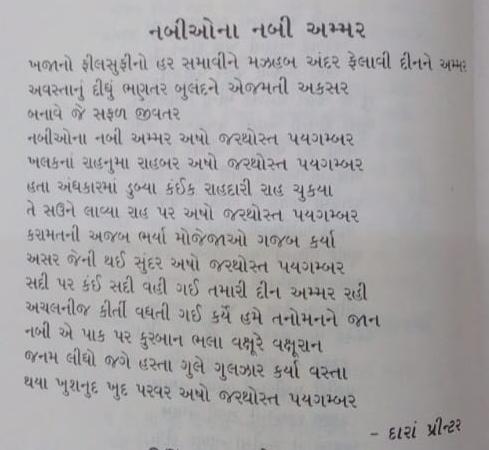 નબીઓના નબી અમ્મર
ખજાનો ફીલસુફીનો હર સમાવીને મઝાહબ અંદર ફેલાવી દીનને અમ્મર
અવસ્તાનું દીધું ભણતર બુલંદને એજમતી અકસર
બનાવે જે સફળ જીવતર
નબીઓના નબી અમ્મર અષો જરથોસ્ત પયગમ્બર
ખલકનાં રાહનુમા રાહબર અષો જરથોસ્ત પયગમ્બર
હતા અંધકારમાં ડુબ્યા કંઈક રાહદારી રાહ ચુકયા
તે સઉને લાવ્યા રાહ પર અષો જરથોસ્ત પયગમ્બર
કરામતની અજબ ભર્યા મોજેજાઓ ગજબ કર્યા
અસર જેની થઈ સુંદર અષો જરથોસ્ત પયગમ્બર
સદી પર કંઈ સદી વહી ગઈ તમારી દીન અમ્મર રહી
અચલનીજ કીર્તી વધતી ગઈ કર્યે હમે તનોમનને જાન
નબી એ પાક પર કુરબાન ભલા વક્ષૂરે વક્ષૂરાન
જનમ લીધો જગે હસ્તા ગુલે ગુલઝાર કર્યા વસ્તા
થયા ખુશનુદ ખુદ પરવર અષો જરથોસ્ત પયગમ્બર
- દારાં પ્રીન્ટર